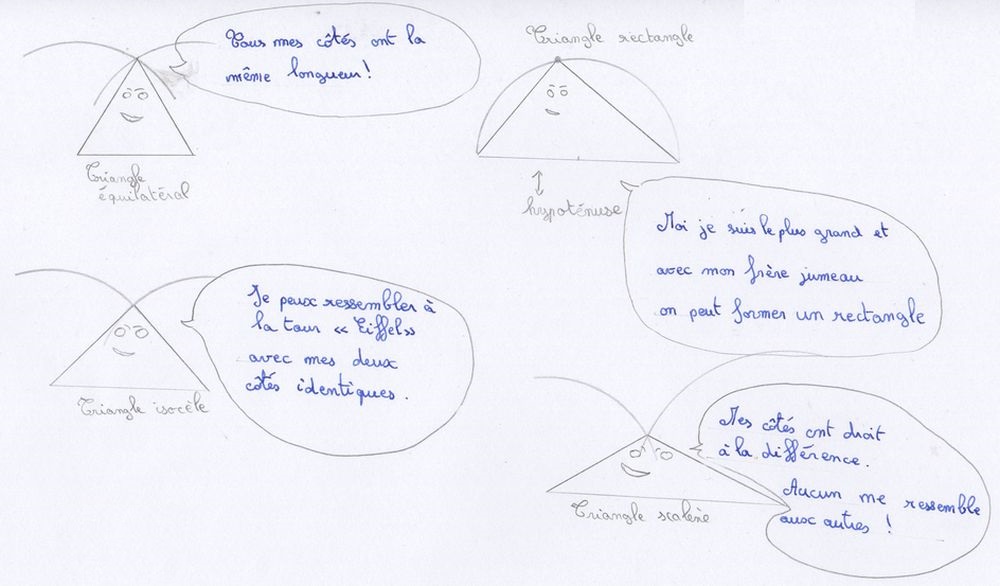 Tous mes côtés ont la
même longueur!
Triangle
équilatéral
Triangle rectangle
hypoténuse
Moi je suis le plus grand et
avec mon frère jumeau
on peut former un rectangle
Je peux ressembler à
la tour « Eiffel»
avec mes deux
côtés identiques.
Triangle isocèle
Mes côtés ont droit
à la différence.
Aucun me ressemble
aux autres !
Triangle scalène